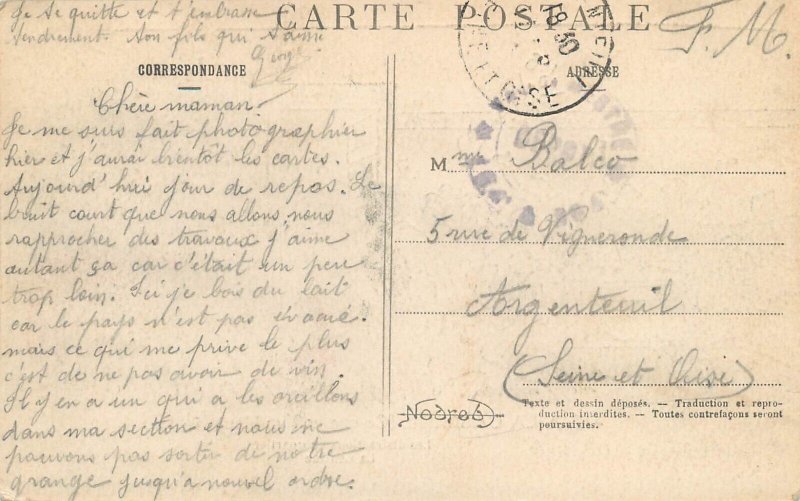 CARTE POSTALE
F. M.
CORRESPONDANCE
ADRESSE
Chère maman.
Je me suis fait photographier
hier et j'aurai bientôt les cartes.
Aujourd'hui jour de repos. Le
bruit court que nous allons nous
rapprocher des travaux j'aime
autant ça car c'était un peu
trop loin. Ici je bois du lait
car le pays n'est pas évacué.
mais ce qui me prive le plus
c'est de ne pas avoir de vin.
Il y en a un qui a les oreillons
dans ma section et nous ne
pouvons pas sortir de notre
grange jusqu'a nouvel ordre.
Je te quitte et t'embrasse
tendrement. Ton fils qui t'aime
M me Balco
5 rue de Vigneronde
Argenteuil
(Seine et Oise)
Nodred
Texte et dessin déposés. — Traduction et repro-
duction interdites. — Toutes contrefaçons seront
poursuivies.
18 30
ET OISE